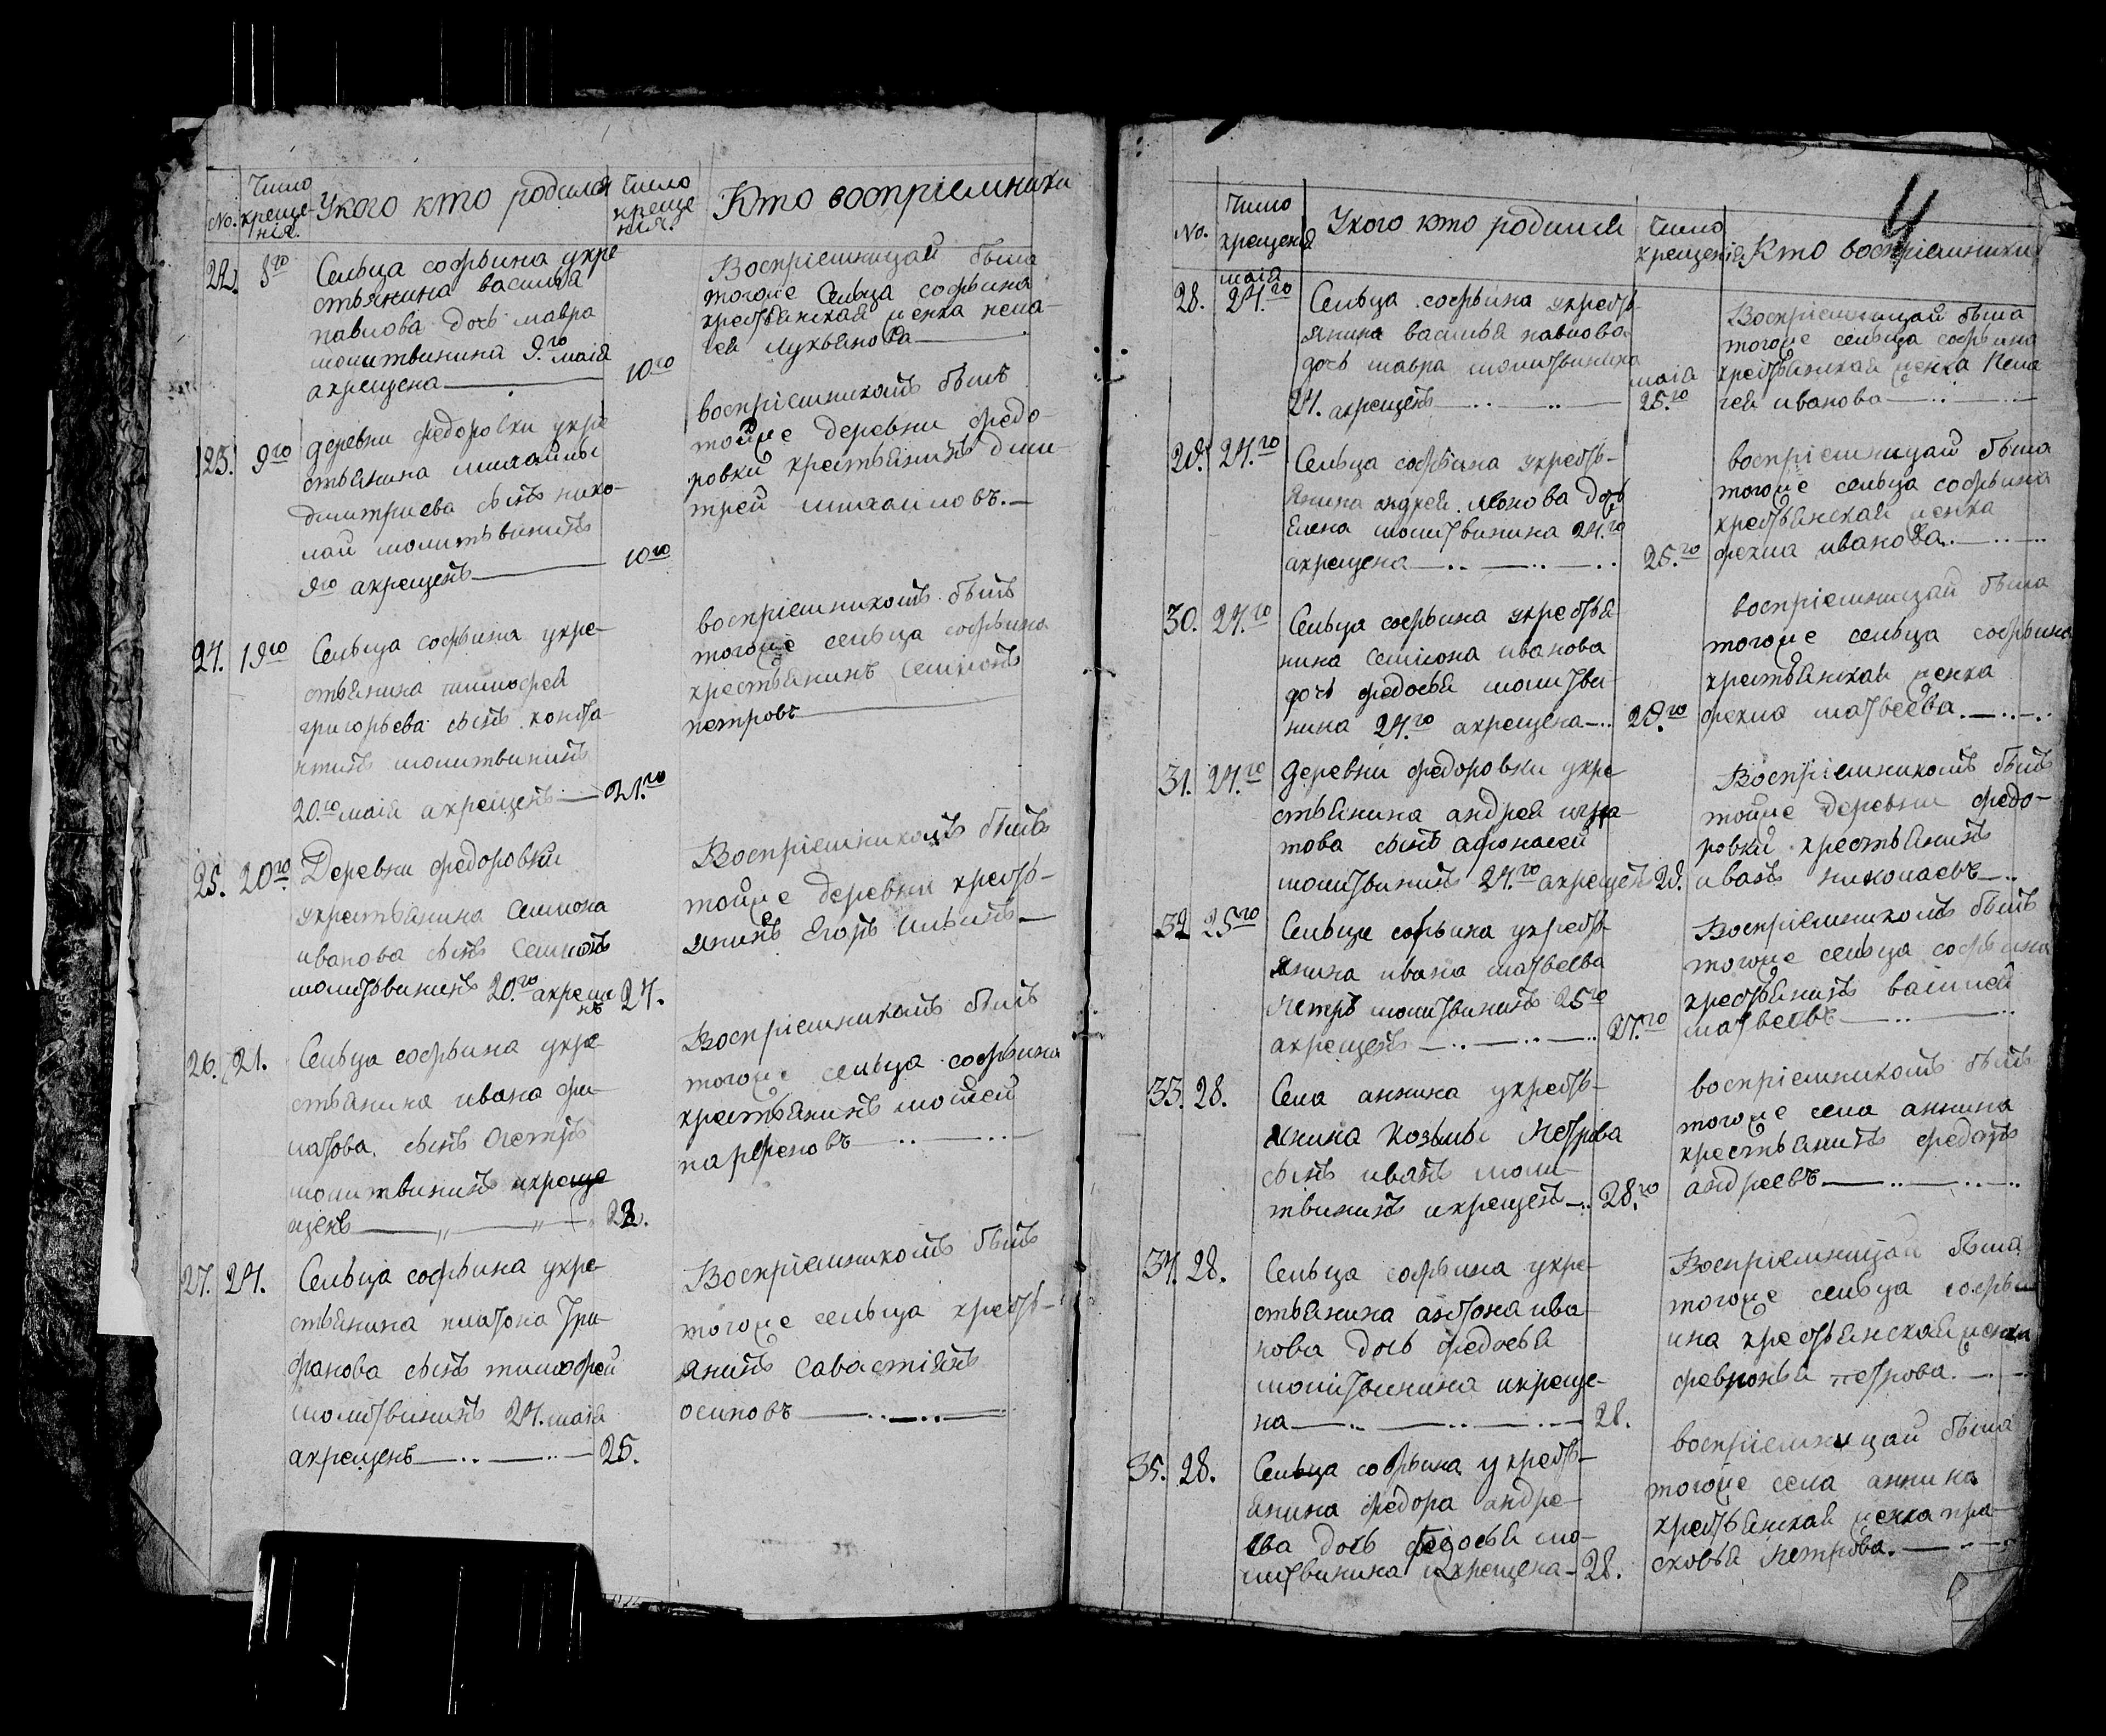 No.
Число
креще-
нія.
Укого кто родился
Число
креще
нія.
Кто восприемники
22. 8го
Сельца софьина укре
стьянина василья
павлова дочь мавра
молитвинина 9.го маія
акрещена 10го
Воспріемницай была
тогоже Сельца софьина
крестьянская женка пела-
гея лукьянова
23. 9го
деревни федоровки укре
стьянина михаилы
дмитриева сынъ нико-
лай молитьвинитъ
9го акрещенъ 10го
воспріемникомъ былъ
тойже деревни федо-
ровки крестьянинъ дми-
трей михаиловъ.
24. 19го
Сельца софьина укре-
стьянина тимофея
григорьева сынъ конста-
нтинъ молитвининъ
20.го маія акрещенъ 21.го
воспріемникомъ былъ
тогоже сельца софьина
крестьянинъ Семіонъ
петровъ
25. 20го
Деревни федоровки
укрестьянина Семиона
иванова сынъ Семионъ
молитьвининъ 20.го акреще
нъ 24.
Воспріемникомъ былъ
тойже деревни кресть-
янинъ Егоръ Ильинъ
26. 21.
Сельца софьина укре-
стьянина ивана фи-
латова, сынъ Петръ
молитвининъ икреще
щенъ 22.
Воспріемникомъ былъ
тогоже сельца софьина
крестьянинъ мойсей
парфеновъ
27. 24.
Сельца софьина укре-
стьянина платона Три-
фанова сынъ тимофей
молитвининъ 24. маія
акрещенъ 25.
Воспріемникомъ былъ
тогоже сельца кресть-
янинъ Савастіянъ
осиповъ
4
No.
Число
крещенія
Укого кто родился
Число
крещенія
Кто воспріемники
28. маія
24.го
Сельца софьина укресть-
янина василья павлова
дочь мавра молитвинина
24. акрещенъ маія
25.го
Воспріемницай была
тогоже сельца софьина
крестьянская женка Пела
гея иванова
29. 24.го
Сельца софьина укресть-
янина андрея леонова дочь
Елена молитвинина 24.го
акрещена 25.го
воспріемницай была
тогоже сельца софьина
крестьянская женка
фекла иванова.
30. 24.го
Сельца софьина укрестья
нина Семіона иванова
дочь федосья молитви
нина 24.го акрещена 29.го
воспріемницай была
тогоже сельца софьина
крестьянская женка
фекла матвеева.
31. 24.го
деревни федоровки укре
стьянина андрея игна
това сынъ афонасей
молитвининъ 24.го акрещенъ 29.
Воспріемникомъ былъ
тойже деревни федо-
ровки крестьянинъ
иванъ николаевъ
32 25го
Сельца софьина укресть-
янина ивана матвеева
Петръ молитвининъ 25го
акрещенъ 27.го
Воспріемникомъ былъ
тогоже сельца софьина
крестьянинъ василей
матвеевъ
33. 28.
Села аннина укресть-
янина Козьмы Петрова
сынъ иванъ моли-
твининъ икрещенъ 28.го
воспріемникомъ былъ
тогоже села аннина
крестьянинъ федотъ
андреевъ
34. 28.
Сельца софьина укре-
стьянина антона ива-
нова дочь федосья
молитвинина икреще-
на 28.
Воспріемницай была
тогоже сельца софьи
ина крестьянская женка
февронья петрова.
35. 28.
Сельца софьина укресть-
янина федора андре-
ева дочь федосья мо-
литвинина икрещена 28.
воспріемницай была
тогоже села аннина
крестьянская женка пра-
сковья Петрова.